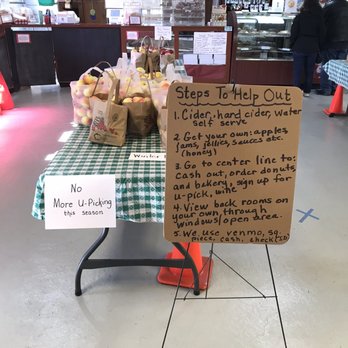 Steps To Help Out
1. Cider, hard cider, water
self serve
2. Get your own: apples
jams, jellies, sauces etc.
(honey)
3. Go to center line to:
cash out, order donuts,
and bakery, sign up for
u-pick, wine
4. View back rooms on
your own, through
windows/open area.
5. We use venmo, sq.
No
More U-Picking
this season